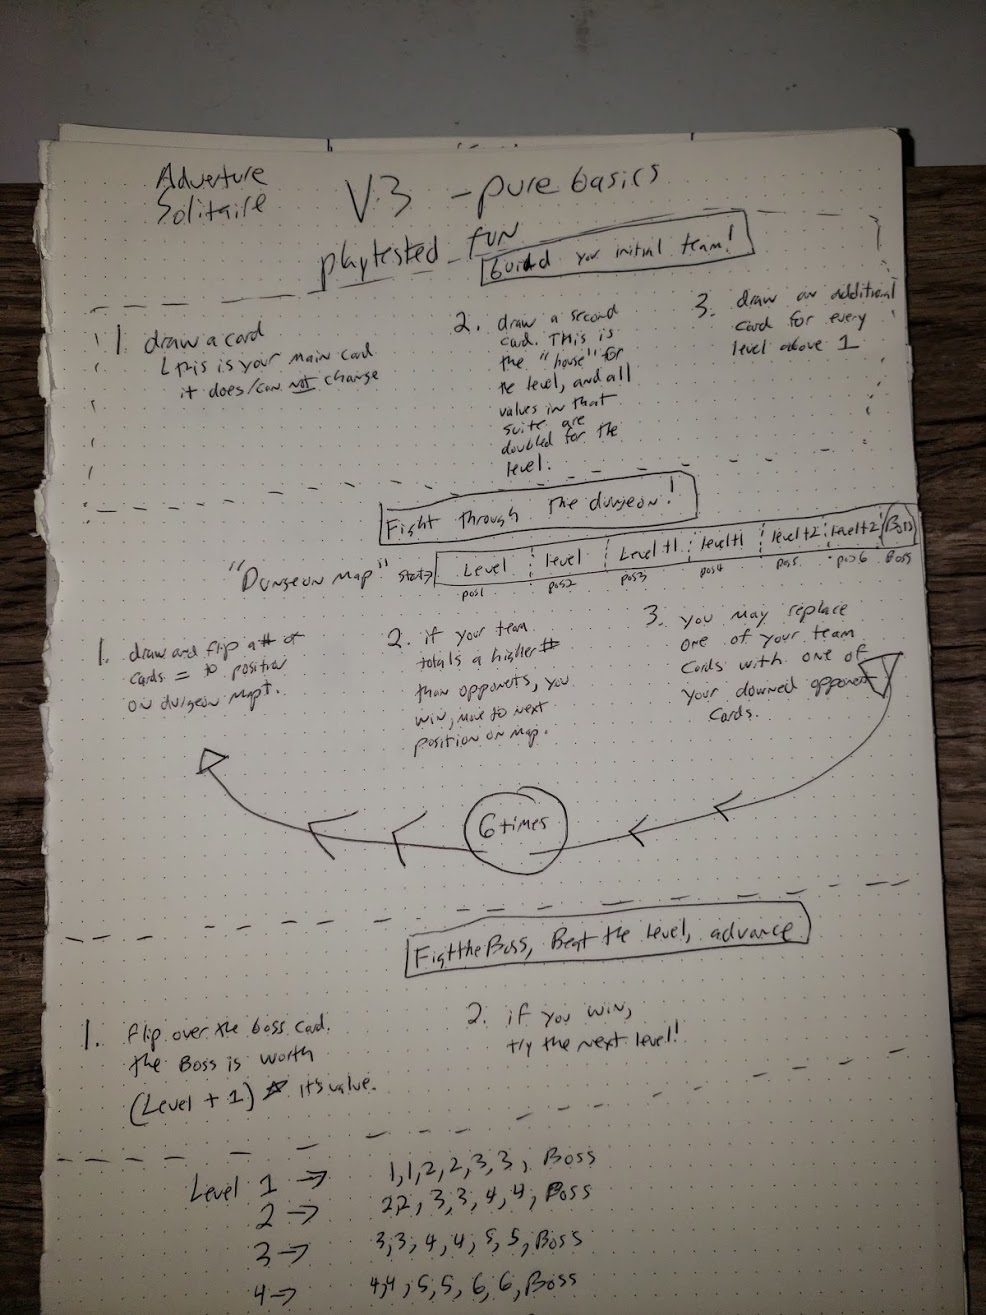 Adventure
Solitaire
V.3 - pure basics
playtested fun
build you initial team!
1. draw a card
this is your main card
it does/can not change
2. draw a second
card. This is
the "house" for
the level, and all
values in that
suite are
doubled for the
level.
3. draw an additional
card for every
level above 1
Fight through the dungeon!
"Dungeon Map" start→ Level level Level+1 level+1 level+2 level+2 Boss
pos1 pos2 pos3 pos4 pos5 pos6 Boss
1. draw and flip a # of
cards = to position
on dungeon map.
2. if your team
totals a higher #
than opponents, you
win, move to next
position on map.
3. you may replace
one of your team
cards with one of
your downed opponent
cards.
6 times
Fight the Boss, Beat the Level, advance
1. Flip over the boss card.
the Boss is worth
(Level + 1) * it's value.
2. if you win,
try the next level!
Level 1 → 1,1,2,2,3,3, Boss
2 → 2,2, 3,3, 4,4, Boss
3 → 3,3, 4,4, 5,5, Boss
4 → 4,4, 5,5, 6,6, Boss